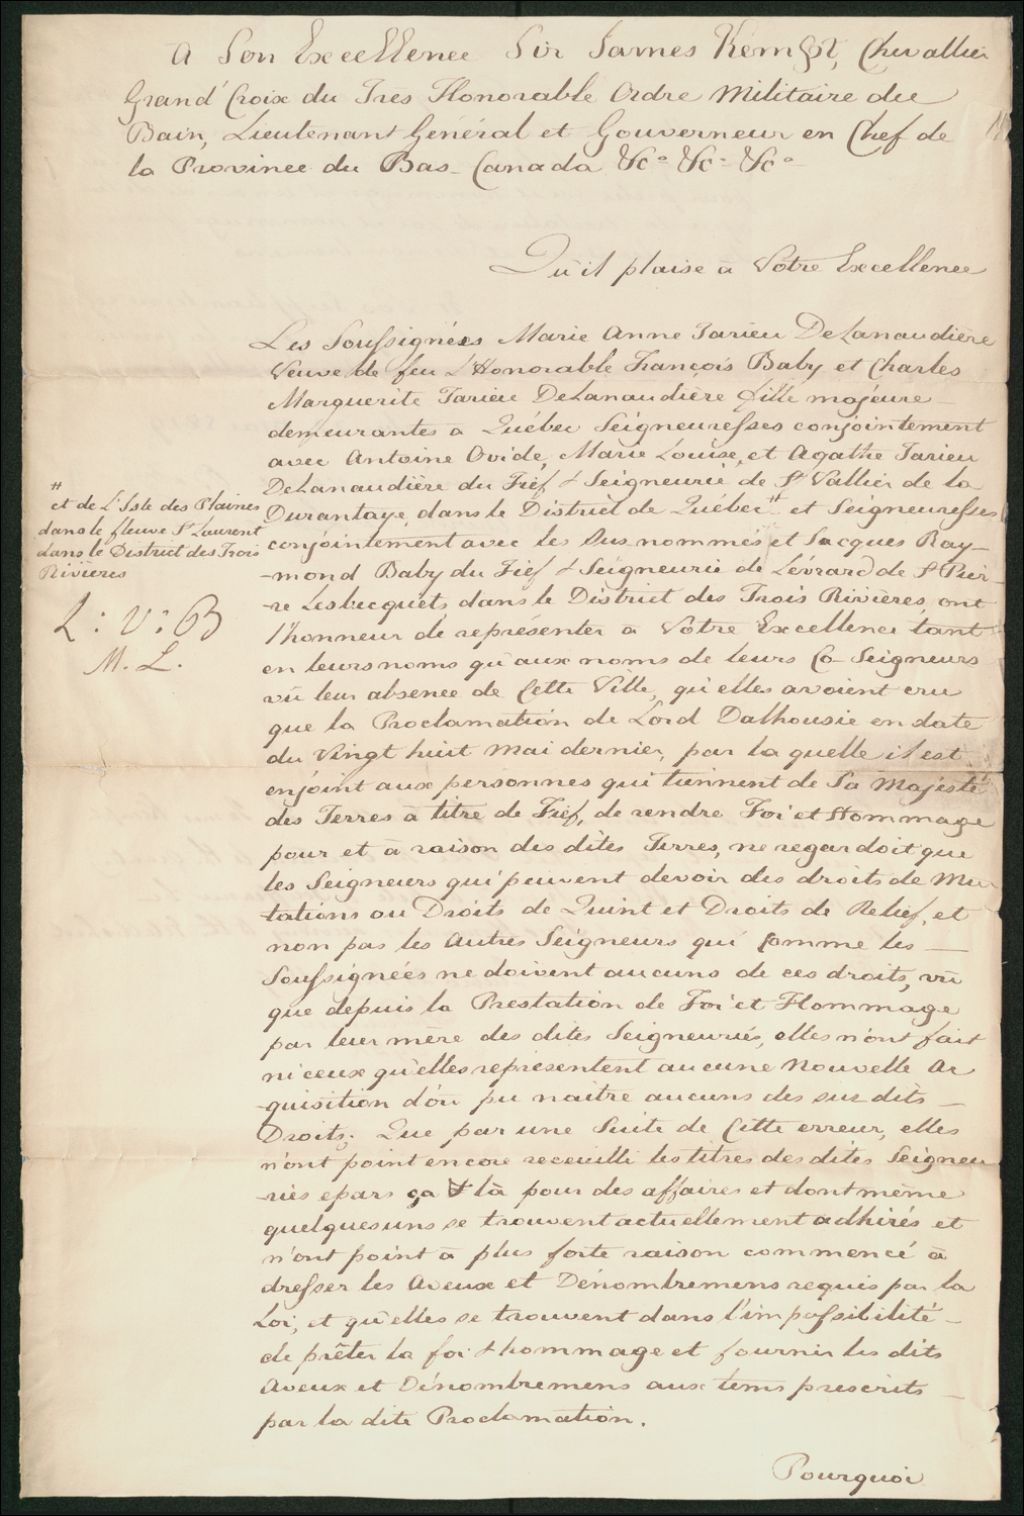 A Son Excellence Sir James Kempt, Chevallier
Grand Croix du Tres Honorable Ordre Militaire du
Bain, Lieutenant Général et Gouverneur en Chef de
la Province du Bas-Canada &c. &c. &c.
Qu'il plaise à Votre Excellence
Les Soussignées Marie Anne Tarieu DeLanaudière
Veuve de feu L'Honorable François Baby et Charles
Marguerite Tarieu DeLanaudière fille majeure
demeurantes à Québec Seigneuresses conjointement
avec Antoine Ovide, Marie Louise, et Agathe Tarieu
DeLanaudière du Fief & Seigneurie de St Vallier de la
Durantaye, dans le District de Québec # et Seigneuresses
conjointement avec les Sus nommés et Jacques Ray-
-mond Baby du Fief & Seigneurie de Lévrard de St Pier-
-re Lesbecquets dans le District des Trois Rivières, ont
l'honneur de représenter à Votre Excellence tant
en leurs noms qu'aux noms de leurs Co-Seigneurs
vû leur absence de Cette Ville, qu'elles avoient cru
que la Proclamation de Lord Dalhousie en date
du Vingt huit Mai dernier, par la quelle il est
enjoint aux personnes qui tiennent de Sa Majesté
des Terres à titre de Fief, de rendre Foi et Hommage
pour et à raison des dites Terres, ne regardoit que
les Seigneurs qui peuvent devoir des droits de Mu-
-tations ou Droits de Quint et Droits de Relief, et
non pas les Autres Seigneurs qui Comme les
Soussignées ne doivent aucuns de ces droits, vû
que depuis la Prestation de Foi et Hommage
par leur mère des dites Seigneuries, elles n'ont fait
ni ceux qu'elles representent aucune Nouvelle Ac
-quisition d'où pu naitre aucuns des sus dits
Droits; Que par une Suite de Cette erreur, elles
n'ont point encore receuilli les titres des dites Seigneu
-ries epars ça & là pour des affaires et dont même
quelques uns se trouvent actuellement adhirés et
n'ont point à plus forte raison commencé à
dresser les Aveux et Dénombremens requis par la
Loi, et qu'elles se trouvent dans l'impossibilité
de prêter la foi & hommage et fournir les dits
Aveux et Dénombremens aux tems prescrits
par la dite Proclamation.
Pourquoi
#
et de L'Isle des Plaines
dans le fleuve St Laurent
dans le District des Trois
Rivières
L: V: B
M. L.